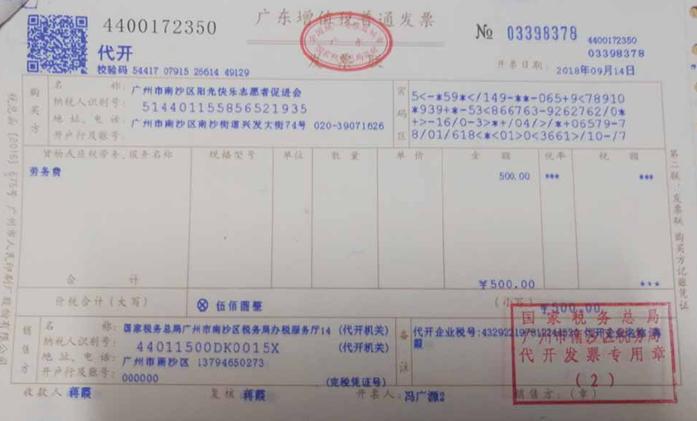 4400172350
广东增值税普通发票
№ 03398378
4400172350
03398378
代开
校验码 54417 07915 26614 49129
开票日期: 2018年09月14日
购买方
名称: 广州市南沙区阳光快乐志愿者促进会
纳税人识别号: 514401155856521935
地址、电话: 广州市南沙区南沙街道兴发大街74号 020-39071626
开户行及账号:
密码区
5<-*59*</149-**-065+9<78910
*939+*-53<866763-9262762/0*
+>-16/0-3>*+/04/>/*+06579-7
8/01/618<*<01>0<3661>/10-/7
货物或应税劳务、服务名称 规格型号 单位 数量 单价 金额 税率 税额
劳务费 500.00 *** ***
合计 ¥500.00 ***
价税合计(大写) ⊗ 伍佰圆整 (小写) ¥500.00
销售方
名称: 国家税务总局广州市南沙区税务局办税服务厅14 (代开机关)
纳税人识别号: 44011500DK0015X (代开机关)
地址、电话: 广州市南沙区 13794650273
开户行及账号: 000000 (完税凭证号)
备注
代开企业税号: 代开企业名称: 蒋霞
国家税务总局
广州市南沙区税务局
代开发票专用章
(2)
收款人 蒋霞 复核 蒋霞 开票人: 冯广源2 销售方: (章)
第二联:发票联 购买方记账凭证